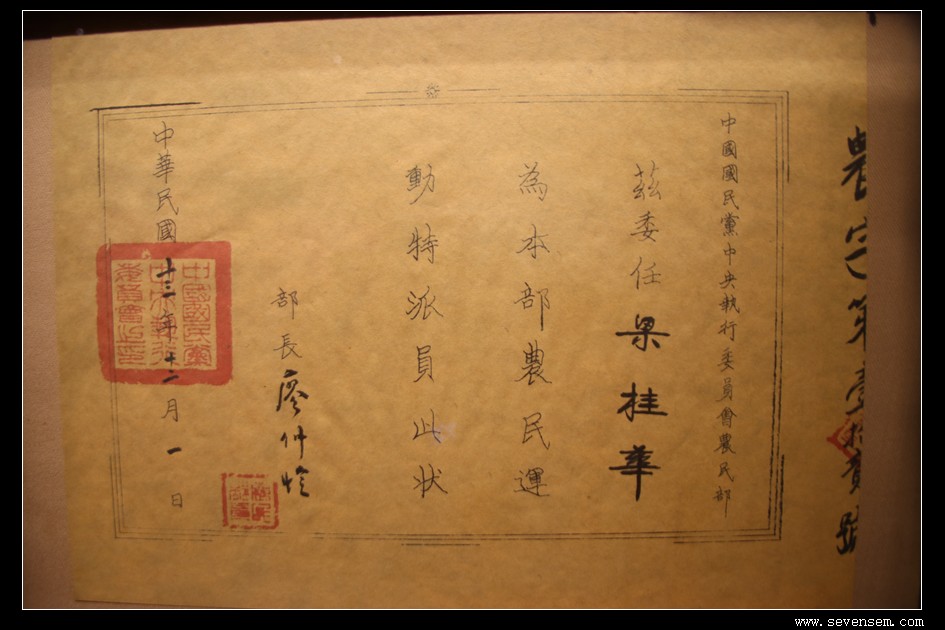 農字第壹拾貳號
中國國民黨中央執行委員會農民部
茲委任梁桂華
為本部農民運
動特派員此狀
部長廖仲愷
中華民國十三年十二月一日
中國國民黨
中央執行
委員會之印
www.sevensem.com